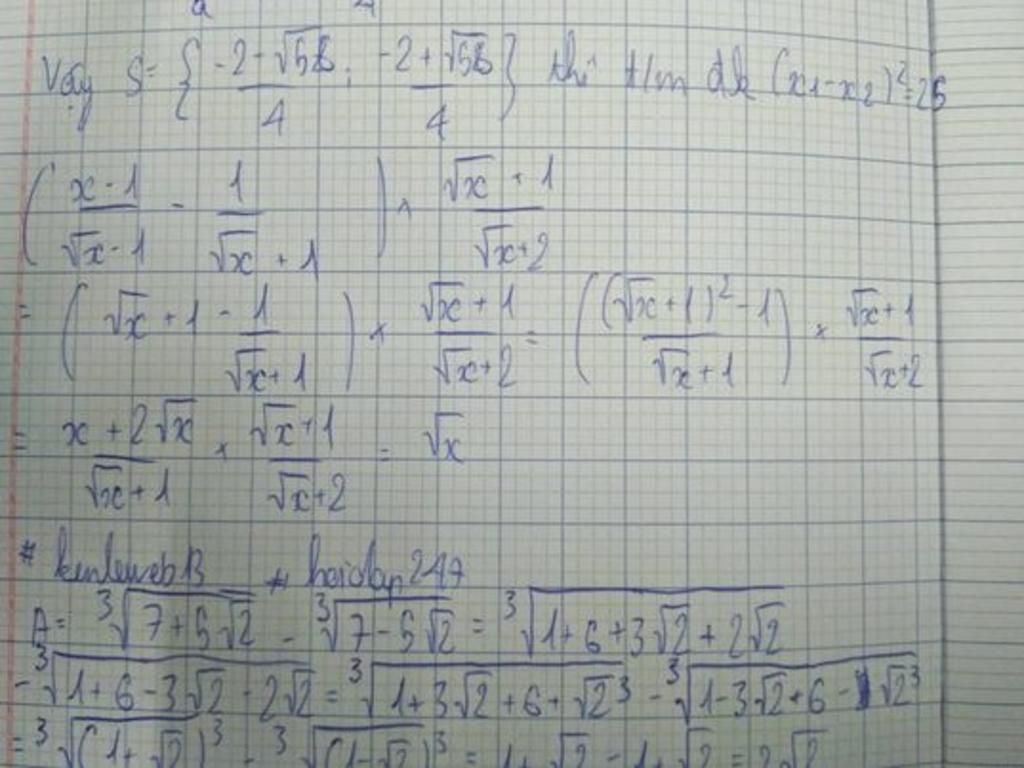 Vậy S = { (-2-√56)/4 ; (-2+√56)/4 } thì t/m đk (x1-x2)² = 26
( (x-1)/(√x-1) - 1/(√x+1) ) × (√x+1)/(√x+2)
= ( √x+1 - 1/(√x+1) ) × (√x+1)/(√x+2) = ( ((√x+1)²-1)/(√x+1) ) × (√x+1)/(√x+2)
= (x+2√x)/(√x+1) × (√x+1)/(√x+2) = √x
# hoidap247
A = ³√(7+5√2) - ³√(7-5√2) = ³√(1+6+3√2+2√2)
- ³√(1+6-3√2-2√2) = ³√(1+3√2+6+√2³) - ³√(1-3√2+6-√2³)
= ³√(1+√2)³ - ³√(1-√2)³ = 1+√2-1+√2 = 2√2